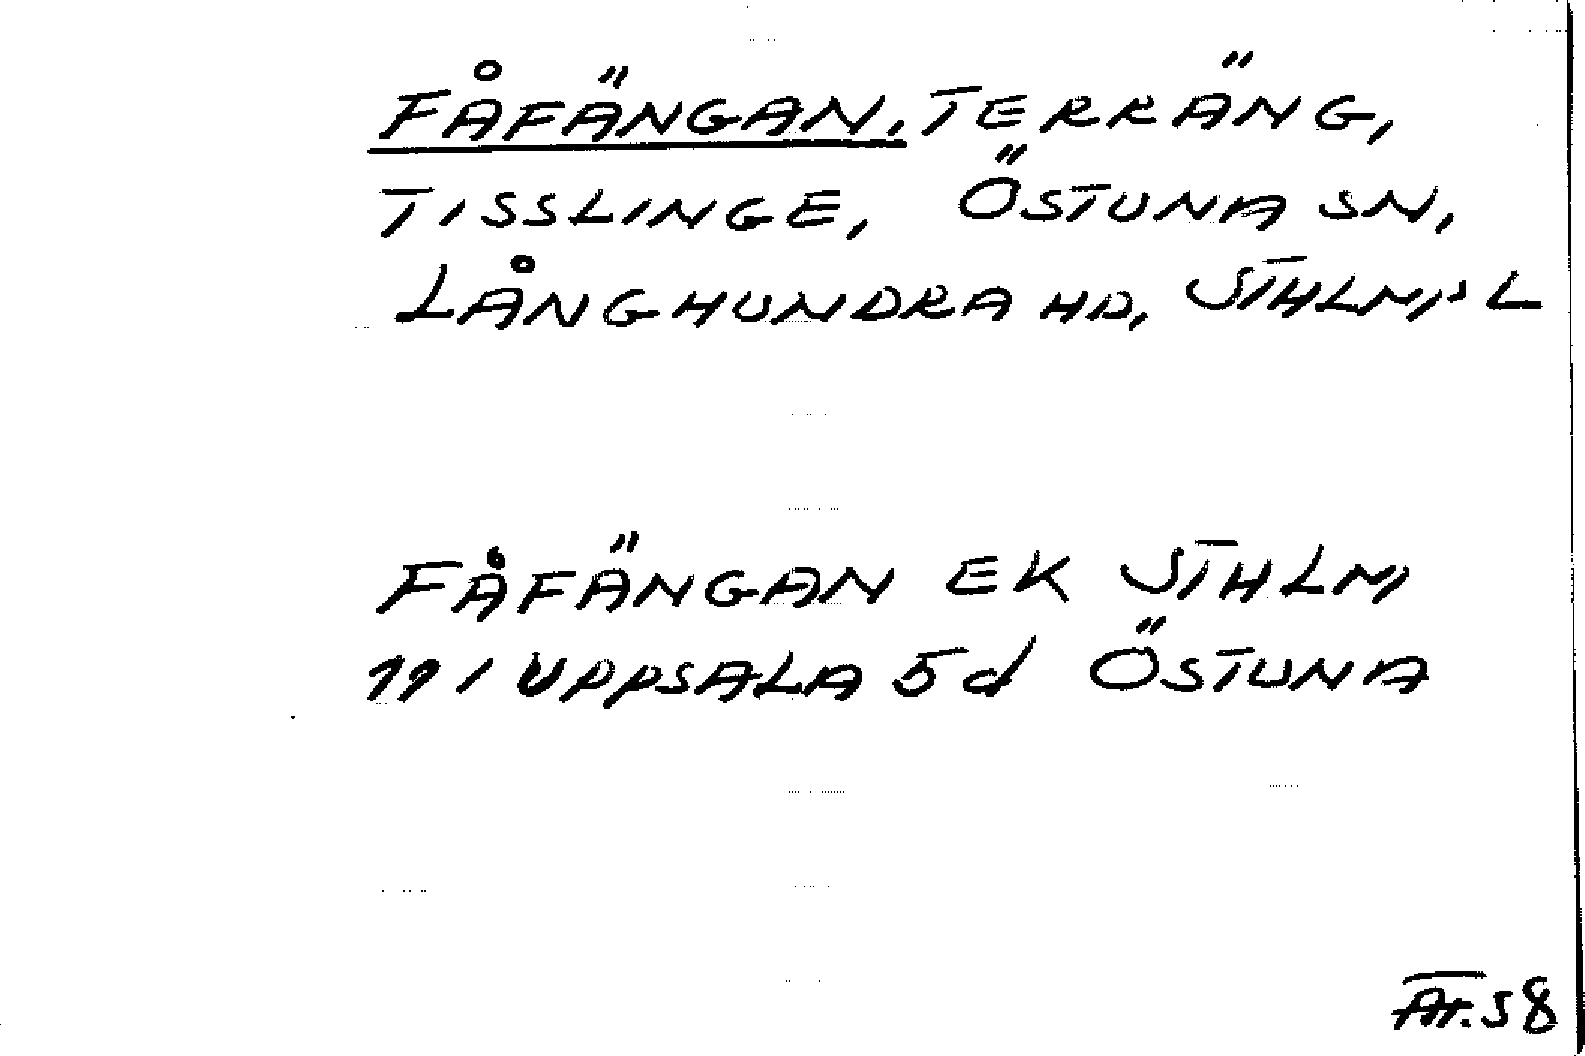 FÅFÄNGAN, TERRÄNG,
TISSLINGE, ÖSTUNA SN,
LÅNGHUNDRA HD, STHLMS L
FÅFÄNGAN EK STHLM
11 I UPPSALA 5d ÖSTUNA
58